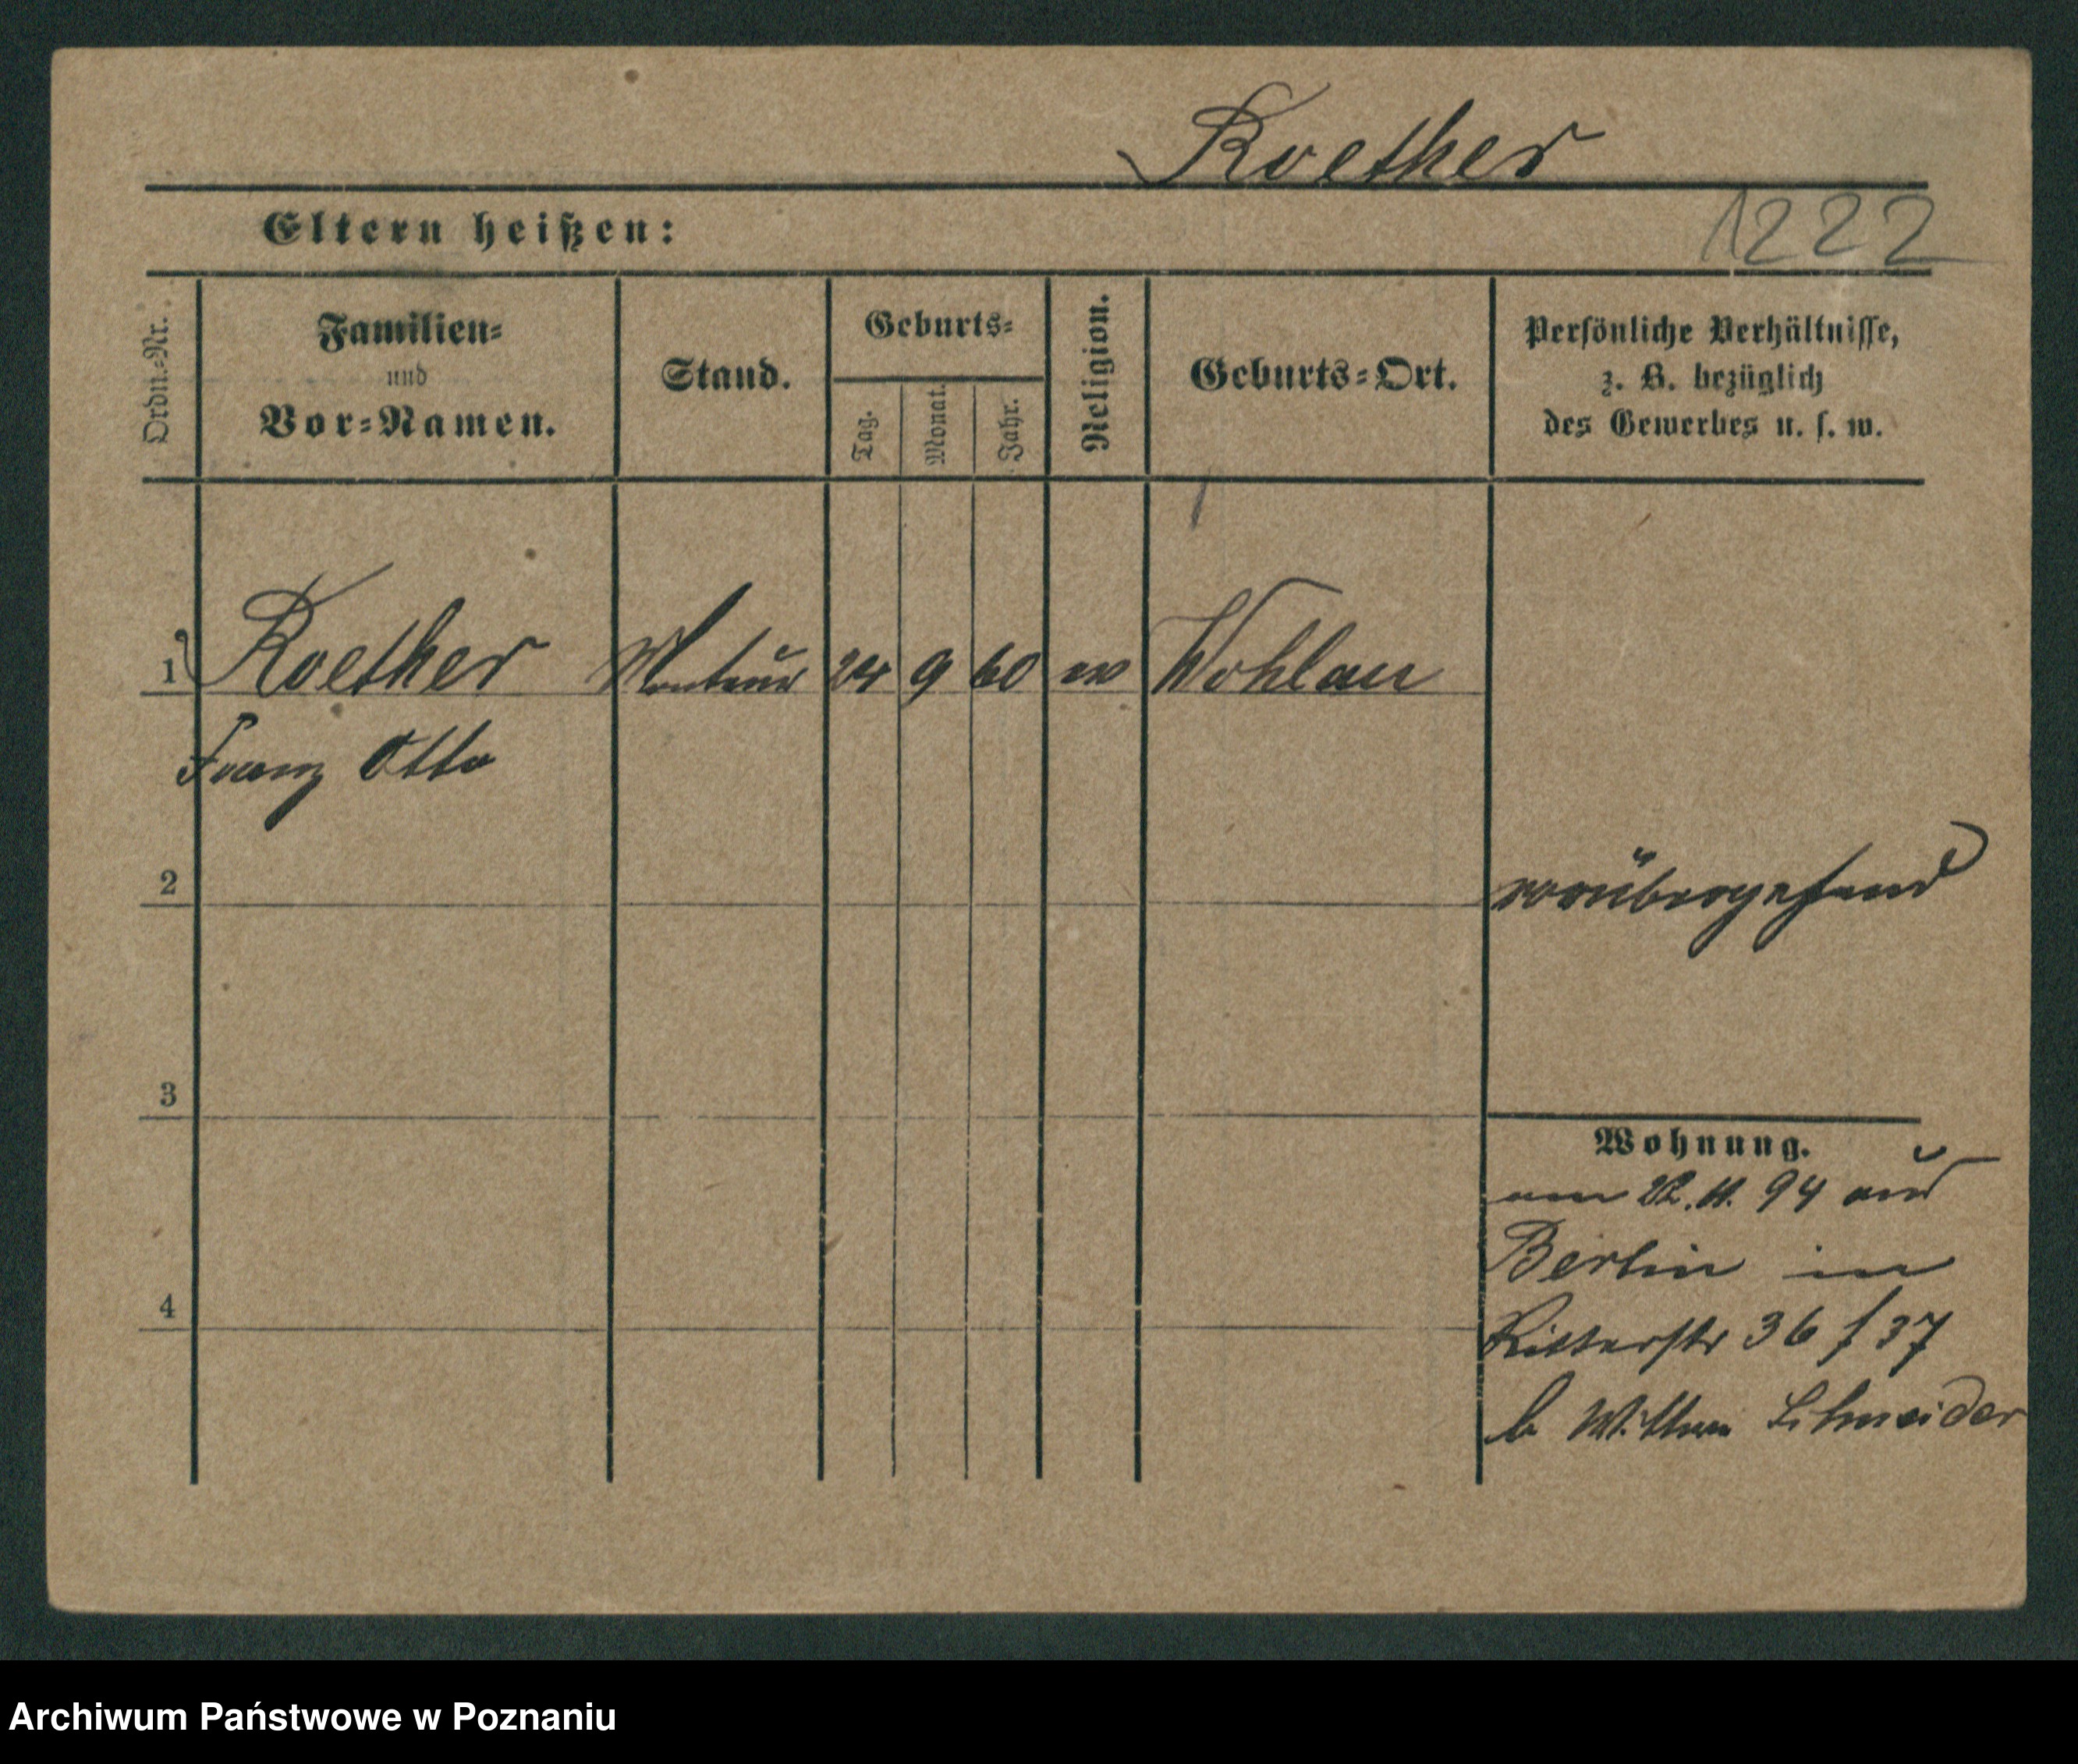 Roether
Eltern heißen:
1222
Ordn.-Nr.
Familien-
und
Vor-Namen.
Stand.
Geburts-
Tag.
Monat.
Jahr.
Religion.
Geburts-Ort.
Persönliche Verhältnisse,
z. B. bezüglich
des Gewerbes u. s. w.
1 Roether Monteur 24 9 60 ev Wohlau
Franz Otto
2
vorübergehend
3
Wohnung.
am 22. 11. 94 aus
Berlin in
4
Ritterstr 36/37
b. Wittwe Schneider
Archiwum Państwowe w Poznaniu